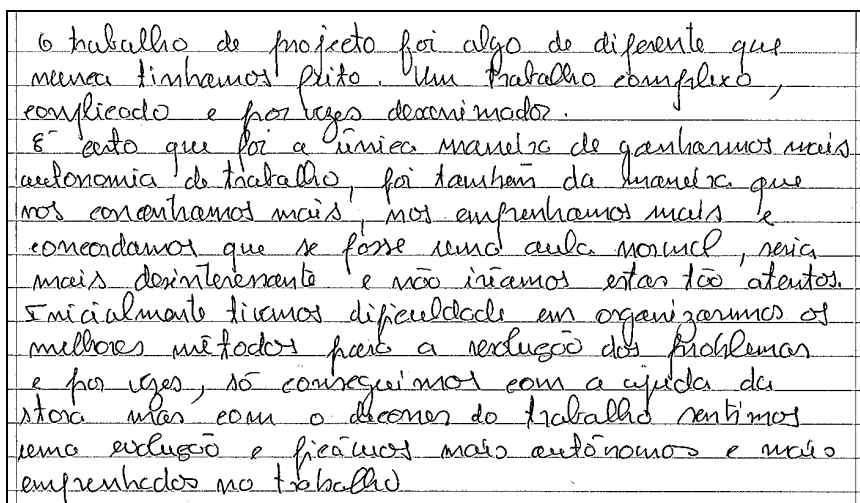 O trabalho de projecto foi algo de diferente que
nunca tinhamos feito. Um trabalho complexo,
complicado e por vezes desanimador.
É certo que foi a única maneira de ganharmos mais
autonomia de trabalho, foi também da maneira que
nos concentramos mais, nos empenhamos mais e
concordamos que se fosse uma aula normal, seria
mais desinteressante e não iriamos estar tão atentos.
Inicialmente tivemos dificuldade em organizarmos os
melhores métodos para a resolução dos problemas
e por vezes, só conseguimos com a ajuda da
stora mas com o decorrer do trabalho sentimos
uma evolução e ficámos mais autónomos e mais
empenhados no trabalho